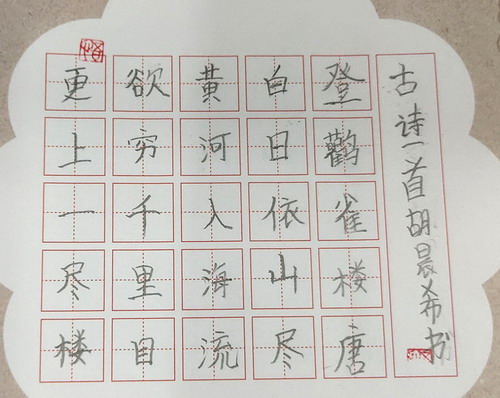 古诗一首胡晨希书
登鹳雀楼唐
白日依山尽
黄河入海流
欲穷千里目
更上一尽楼